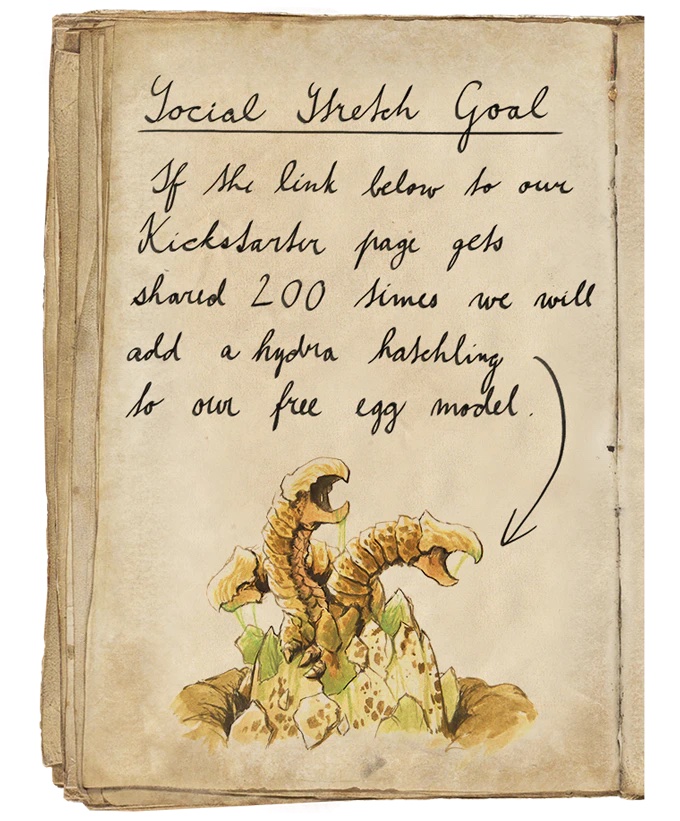 Social Stretch Goal
If the link below to our
Kickstarter page gets
shared 200 times we will
add a hydra hatchling
to our free egg model.